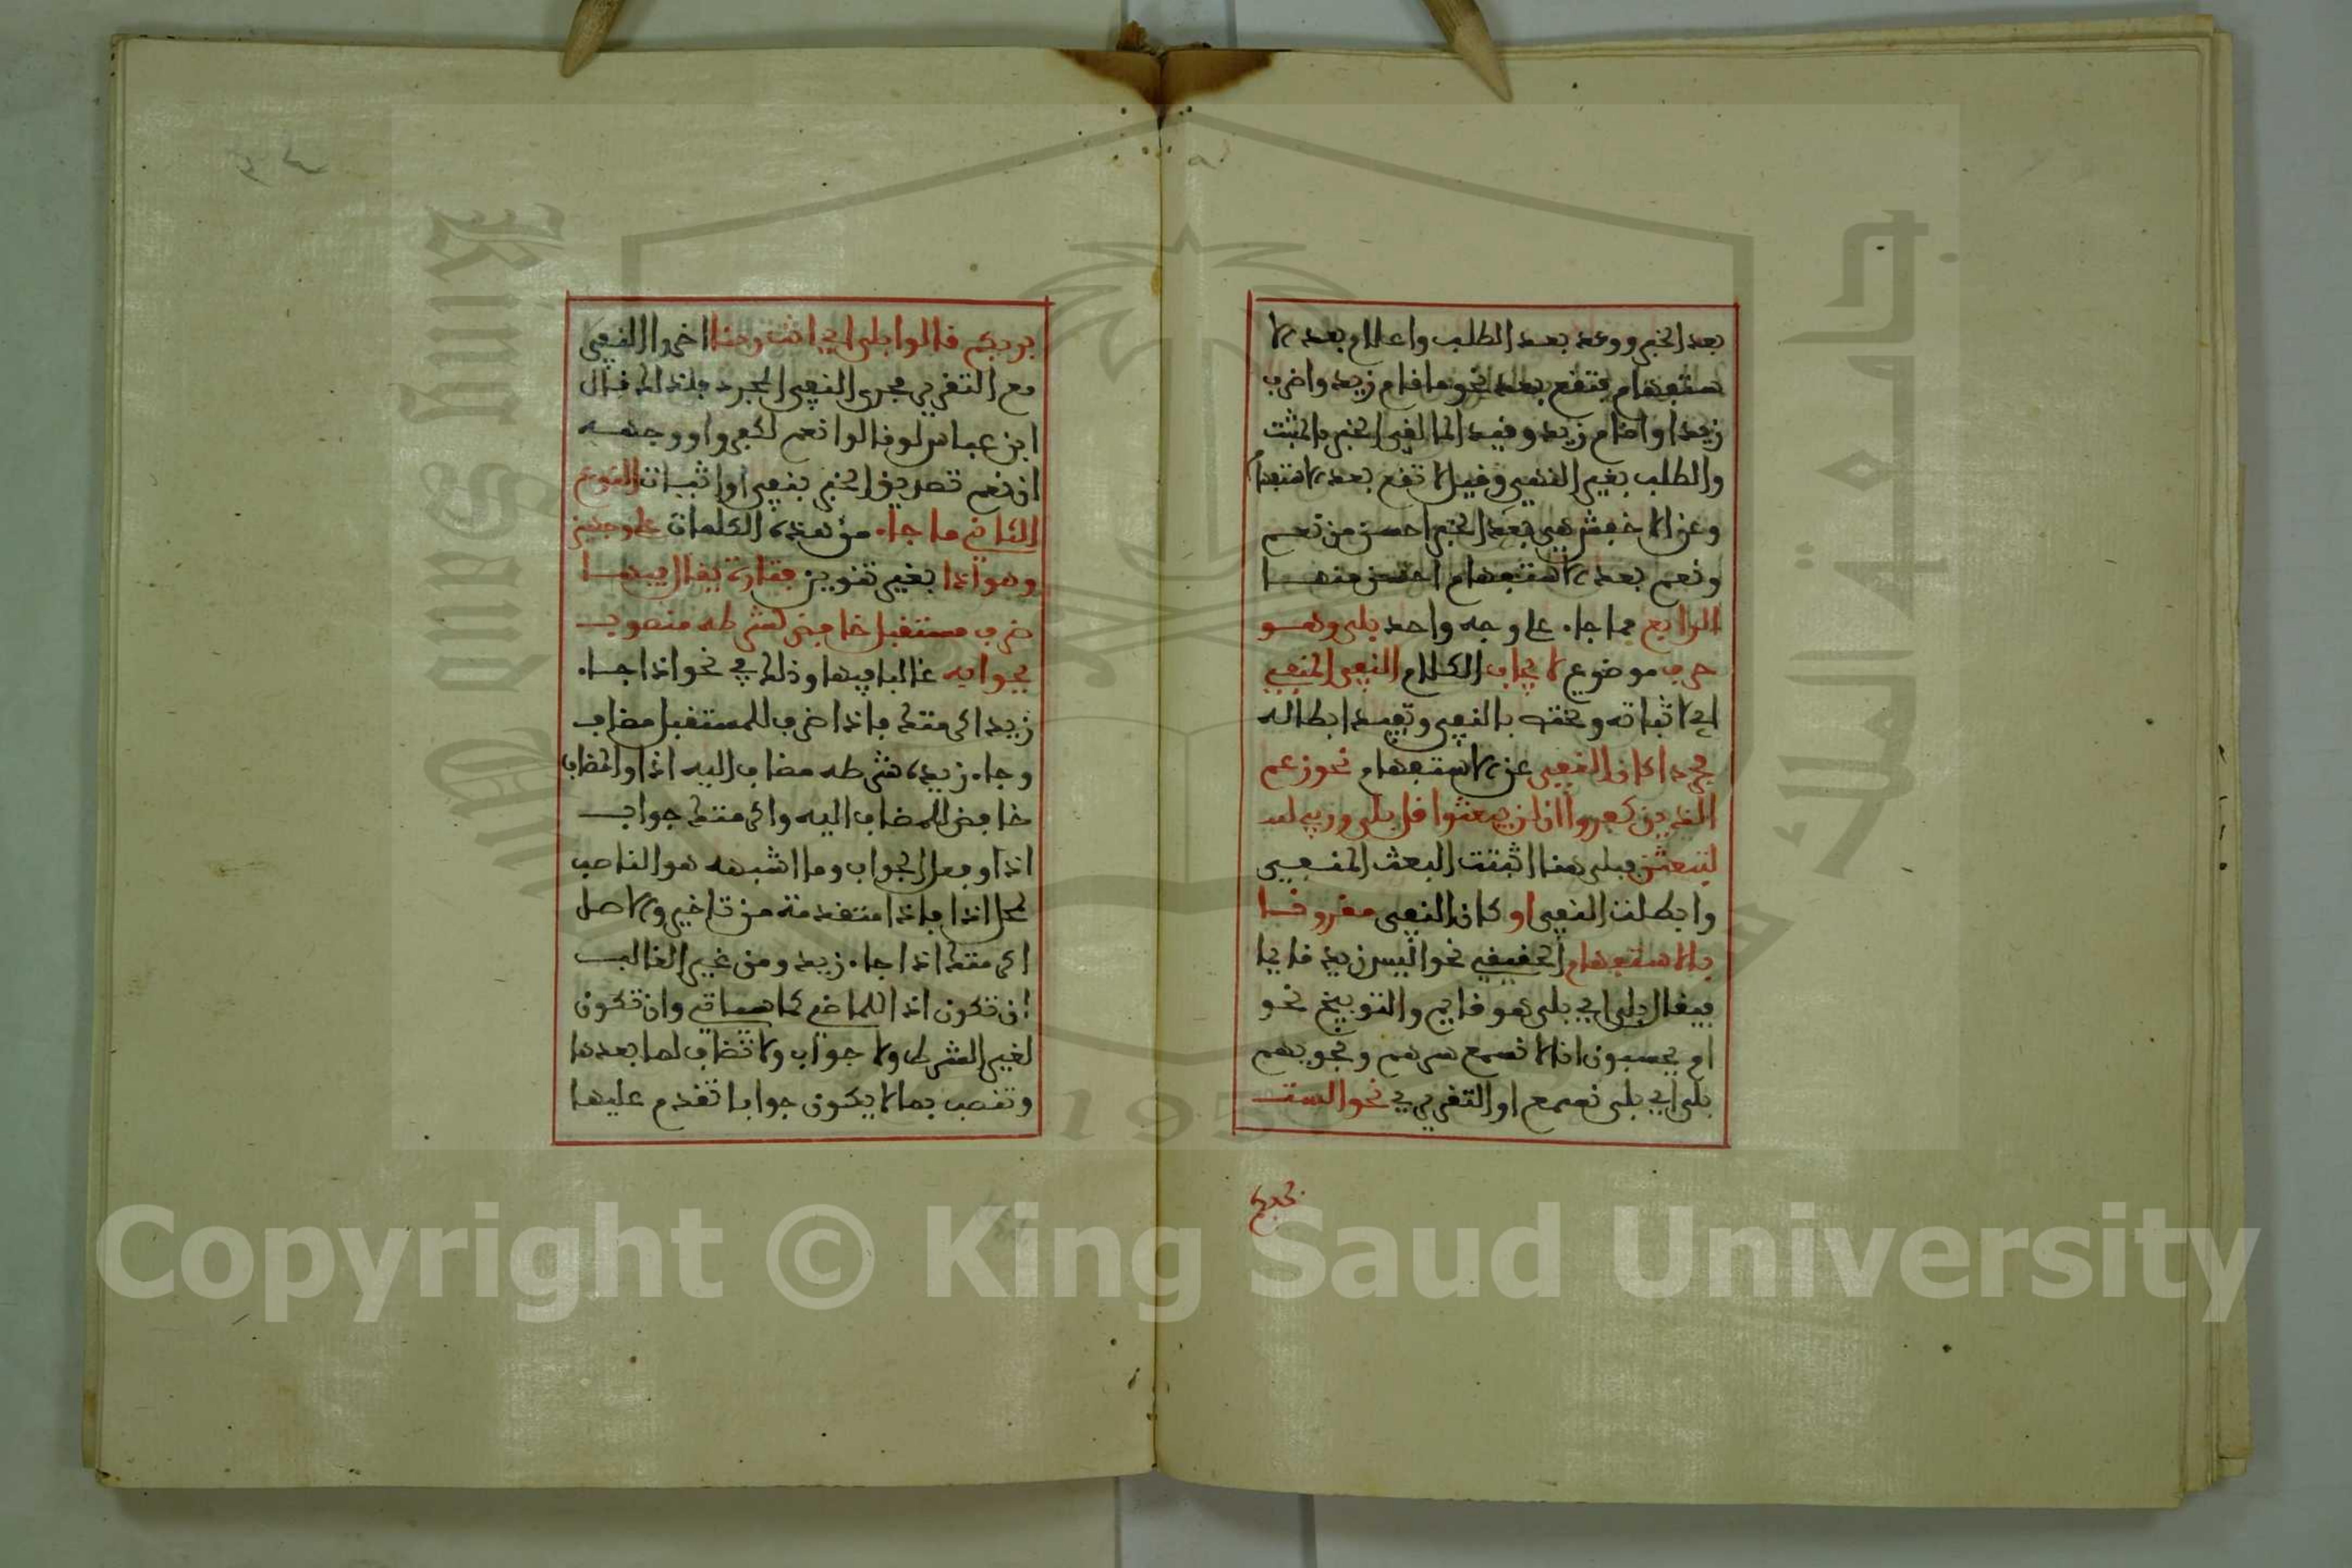 بعد الخبر ووعد بعد الطلب واعلام بعد الا
ستفهام فتقع بعد نحو ما قام زيد واضرب
زيدا واقام زيد وقيد المالقي الخبر بالمثبت
والطلب بغير النهي وقيل لا تقع بعد الاستفهام
وعن الاخفش هي بعد الخبر احسن من نعم
ونعم بعد الاستفهام احسن منها
الرابع مما جاء على وجه واحد بلى وهو
حرف موضوع لايجاب الكلام النفي المنفي
اي لاثباته ومختص بالنفي وتفيد ابطاله
مجردا كان النفي عن الاستفهام نحو زعم
الذين كفروا ان لن يبعثوا قل بلى وربي لتـ
لتبعثن فبلى هنا اثبتت البعث المنفي
وابطلت النفي او كان النفي مقرونا
بالاستفهام الحقيقي نحو اليس زيد قايما
فيقال بلى اي بلى هو قايم والتوبيخ نحو
ام يحسبون انا لا نسمع سرهم ونجويهم
بلى اي بلى نسمع او التقريري نحو الست
بربكم قالوا بلى اي انت ربنا اجروا النفي
مع التقرير مجرى النفي المجرد فلذلك قال
ابن عباس لو قالوا نعم لكفروا ووجهه
ان نعم تصديق الخبر بنفي او اثبات النوع
الثاني ما جاء من هذه الكلمات على وجهين
وهو اذا بغير تنوين فتارة يقال فيها
ظرف مستقبل خافض لشرطه منصوب
بجوابه غالبا فيها وذلك في نحو اذا جاء
زيد اكرمتك فاذا ظرف للمستقبل مضاف
وجاء زيد شرطه مضاف اليه اذا والمضاف
خافض للمضاف اليه واكرمتك جواب
اذا وفعل الجواب وما اشبهه هو الناصب
لمحل اذا فاذا متقدمة من تاخير والاصل
اكرمتك اذا جاء زيد ومن غير الغالب
ان تكون اذا للماضي كما سياتي وان تكون
لغير الشرط ولا جواب ولا تضاف لما بعدها
وتنصب بما لا يكون جوابا تقدم عليها
Copyright © King Saud University
1957